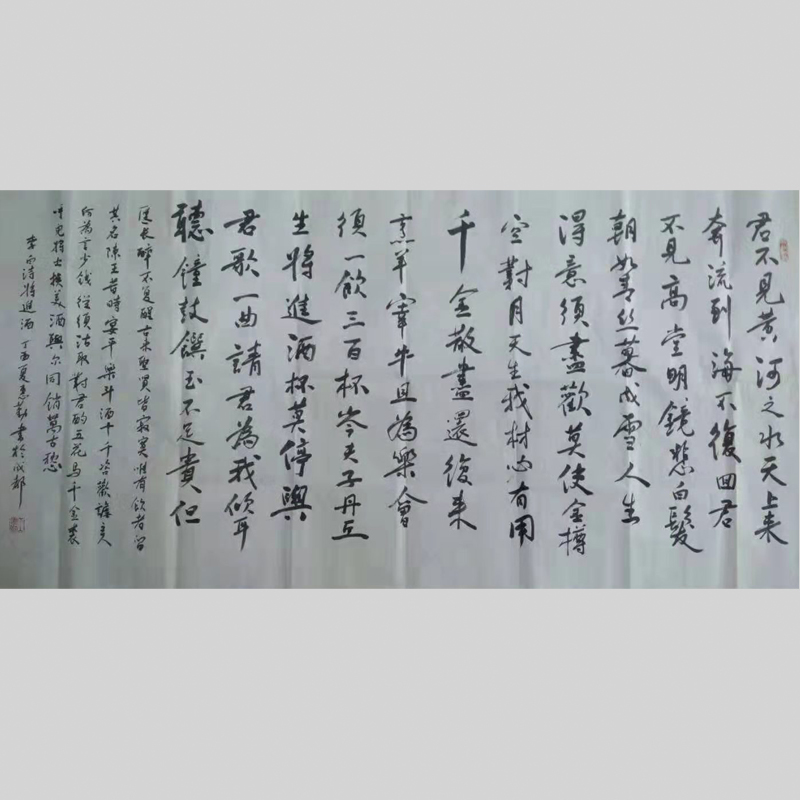 君不見黄河之水天上来
奔流到海不復回君
不見高堂明鏡悲白髮
朝如青丝暮成雪人生
得意须盡歡莫使金樽
空對月天生我材必有用
千金散盡還復来
烹羊宰牛且為樂會
须一飲三百杯岑夫子丹丘
生將進酒杯莫停與
君歌一曲請君為我倾耳
聽鐘鼓饌玉不足貴但
愿長醉不复醒古来聖贤皆寂寞惟有飲者留
其名陳王昔時宴平樂斗酒十千恣歡謔主人
何為言少钱径须沽取對君酌五花马千金裘
呼兒將出换美酒與尔同销萬古愁
李白詩將進酒 丁酉夏 書於成都